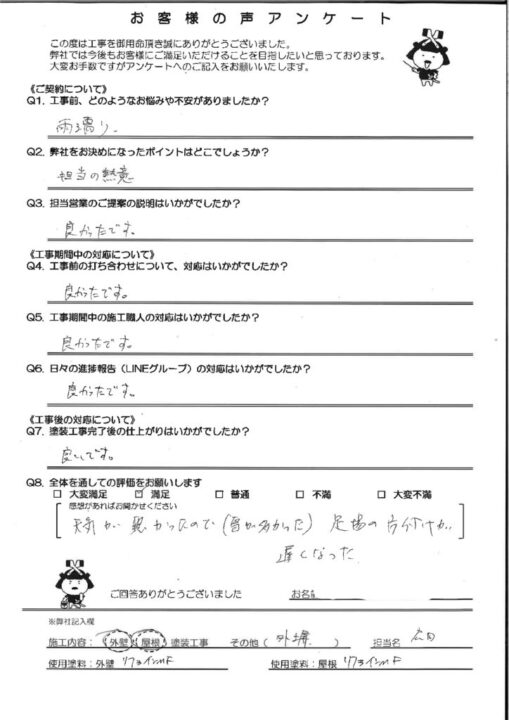 お客様の声アンケート
この度は工事を御用命頂き誠にありがとうございました。
弊社では今後もお客様にご満足いただけることを目指したいと思っております。
大変お手数ですがアンケートへのご記入をお願いいたします。
《ご契約について》
Q1. 工事前、どのようなお悩みや不安がありましたか？
雨漏り。
Q2. 弊社をお決めになったポイントはどこでしょうか？
担当の熱意
Q3. 担当営業のご提案の説明はいかがでしたか？
良かったです。
《工事期間中の対応について》
Q4. 工事前の打ち合わせについて、対応はいかがでしたか？
良かったです。
Q5. 工事期間中の施工職人の対応はいかがでしたか？
良かったです。
Q6. 日々の進捗報告（LINEグループ）の対応はいかがでしたか？
良かったです。
《工事後の対応について》
Q7. 塗装工事完了後の仕上がりはいかがでしたか？
良いです。
Q8. 全体を通しての評価をお願いします
□ 大変満足 ☑ 満足 □ 普通 □ 不満 □ 大変不満
感想があればお聞かせください
天気が悪かったので（雪が多かった）足場の片付けが
遅くなった
ご回答ありがとうございました お名
※弊社記入欄
施工内容：外壁・屋根 塗装工事 その他（外構）担当名
使用塗料：外壁 使用塗料：屋根